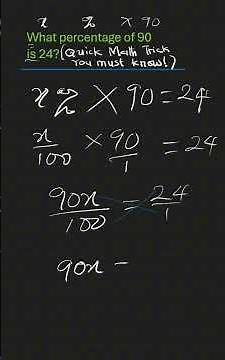 x % × 90
What percentage of 90
is 24? (Quick Math Trick
You must know!)
x % × 90 = 24
x/100 × 90/1 = 24
90x/100 = 24/1
90x =